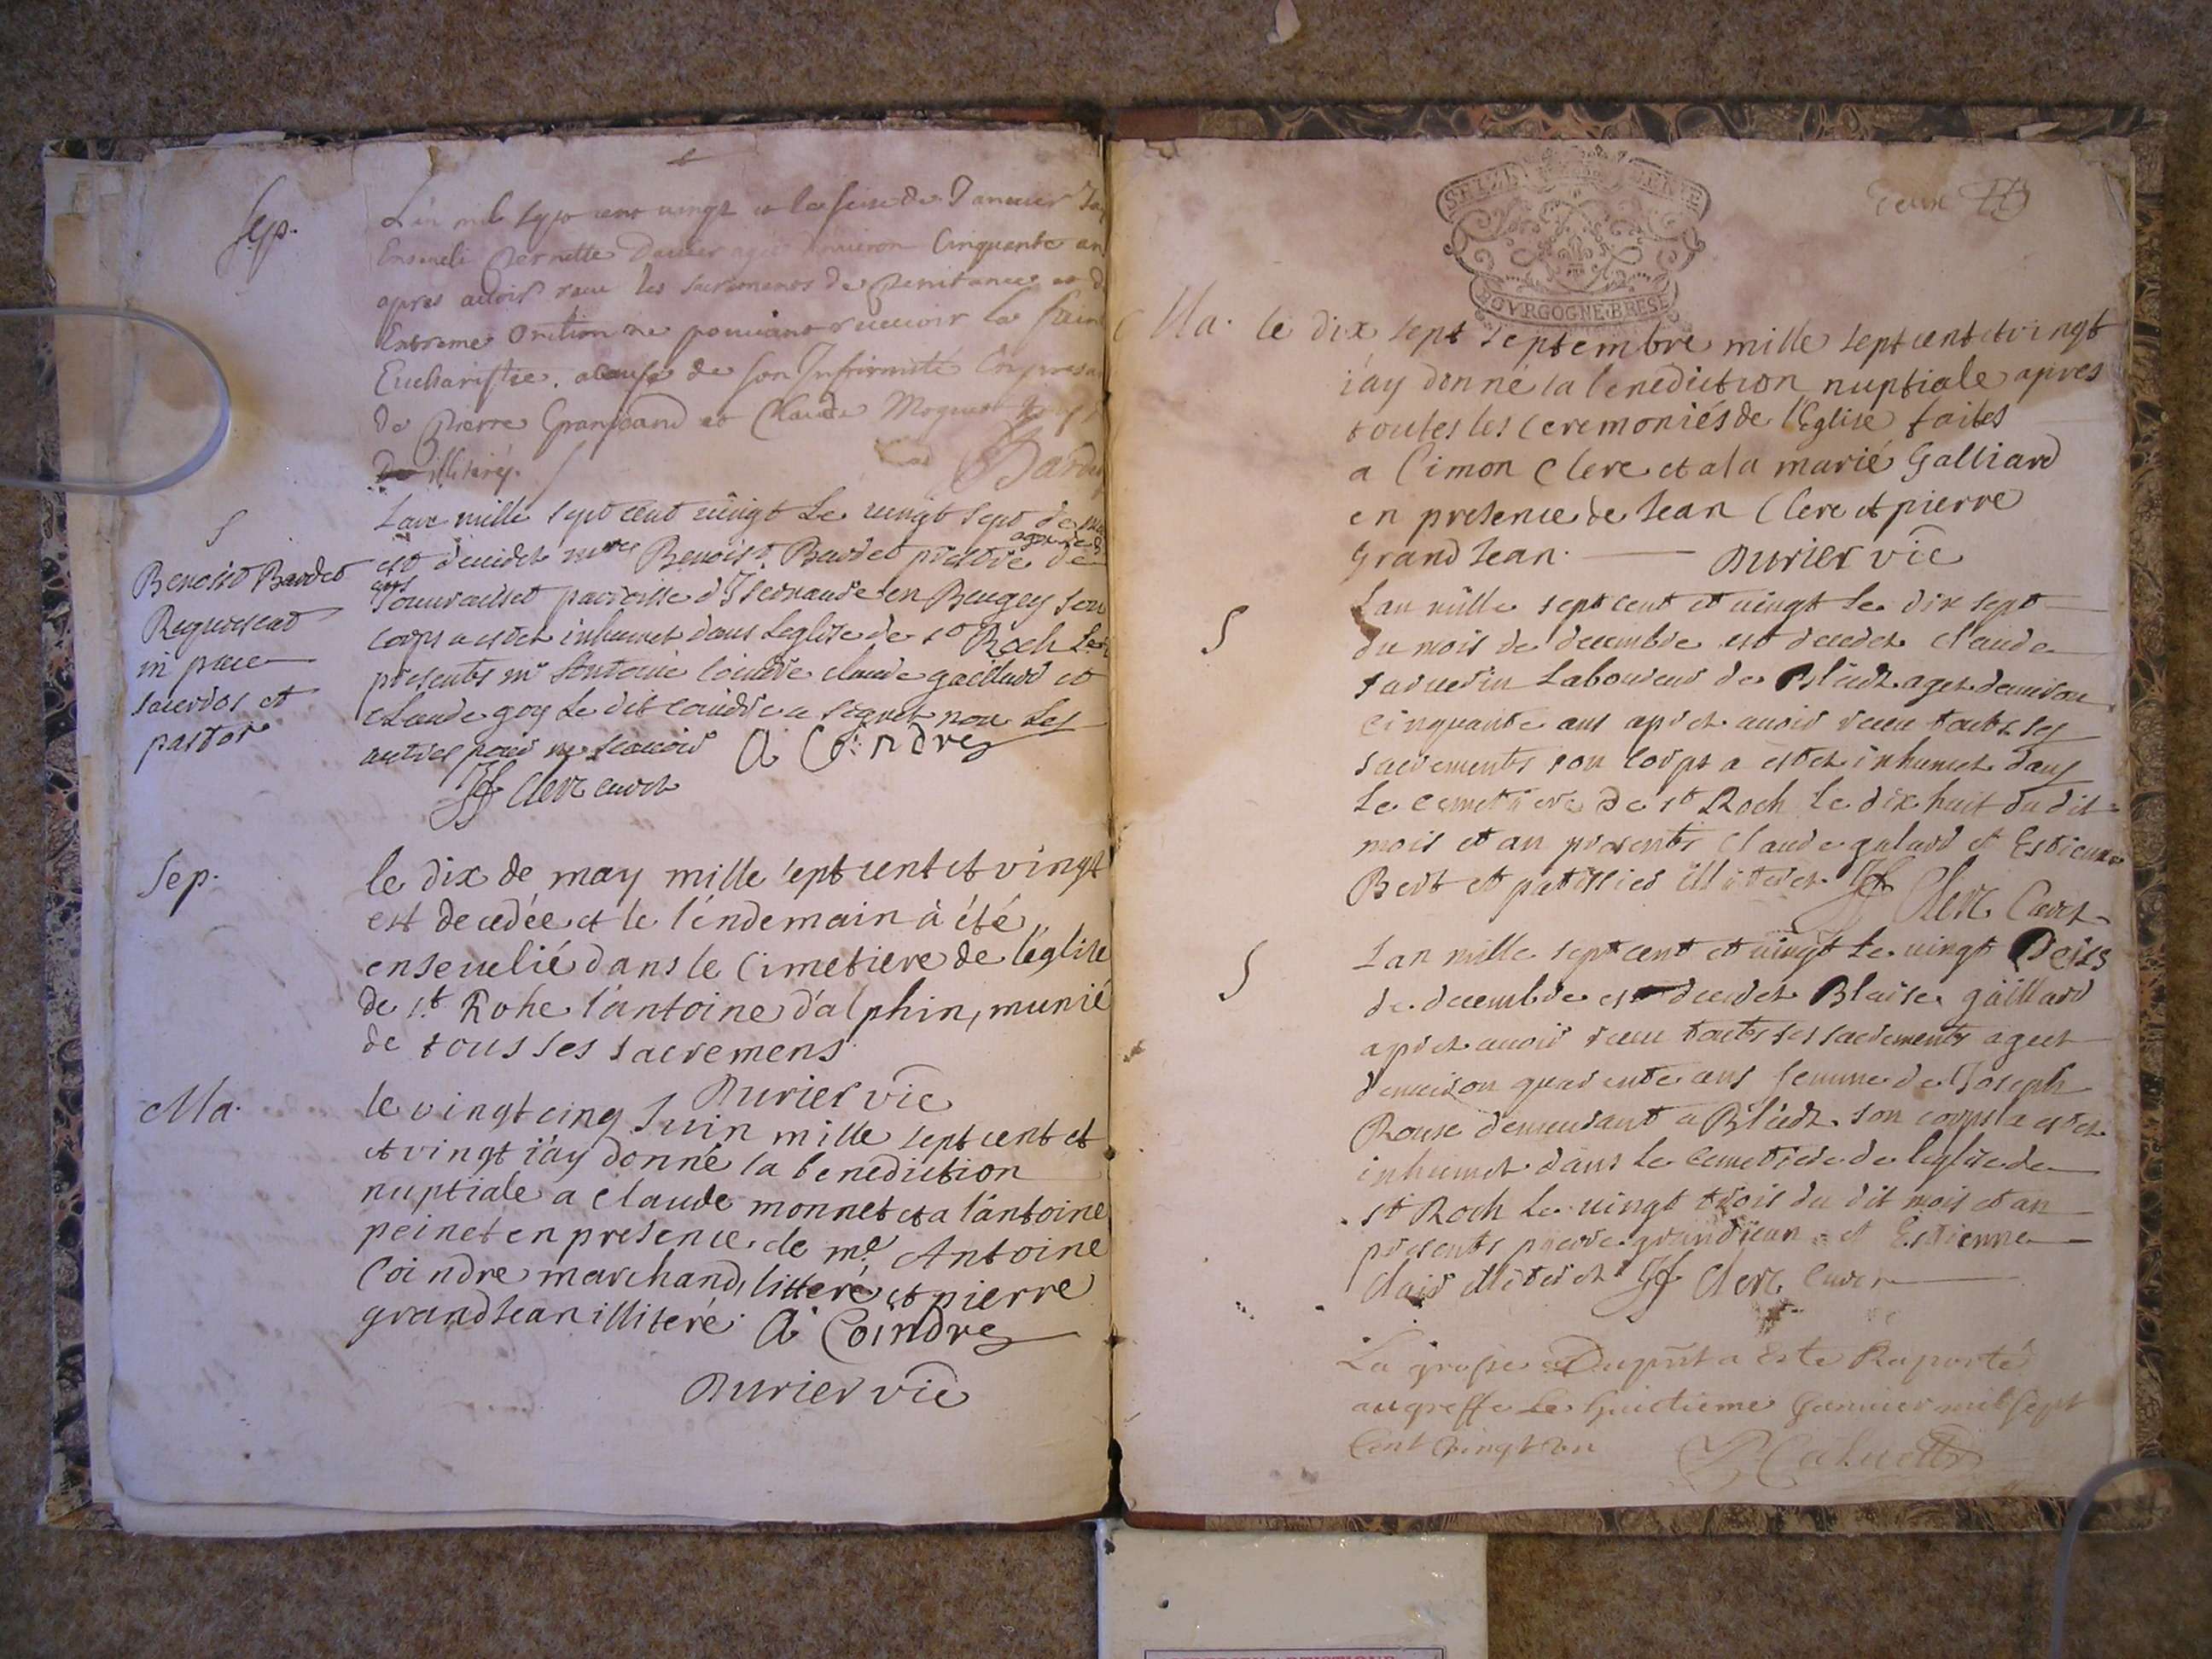 Sep.
L'an mil sept cent vingt et le seise de Janvier
Enseveli Pernette agée d'environ Cinquante an
apres avoir receu les sacremens de Penitance et d
Extreme Onction ne pouvant recevoir la Sain
Eucharistie, a cause de son Infirmité En presa
de Pierre Granjeand et Claude
illiterés.
S
Benoist Bardet
Requiescat
in pace
sacerdos et
pastor
L'an mille sept cent vingt Le vingt sept de
est decedet mre Benoist Bardet prestre
parroisse d'Isernaude en Beugey son
corps a estet inhumet dans Leglise de st Roch Le
presents mr Antoine Coindre claude gaillard et
Claude goy Le dit Coindre a signet non Les
autres pour ne scavoir A Coindre
Clerc curet
Sep.
le dix de may mille sept cent et vingt
est decedée et le lendemain à été
ensevelié dans le Cimetiere de l'église
de st. Rohe l'antoine d'alphin, munié
de tous ses sacremens
Durier vic
Ma.
le vingt cinq Juin mille sept cent et
et vingt i'ay donné la benediction
nuptiale a Claude monnet et a l'antoine
peinet en presence de me. Antoine
Coindre marchand, litteré et pierre
grandJean illiteré. A Coindre
Durier vic
BOVRGOGNE BRESE
Ma. le dix sept septembre mille sept cent et vingt
i'ay donné la benediction nuptiale apres
toutes les Ceremoniés de l'Eglise faites
a Cimon Clerc et a la marié Galliard
en presence de Jean Clerc et pierre
GrandJean. Durier vic
S
L'an mille sept cent et vingt Le dix sept
du mois de decembre est decedet claude
Laboureur de aget denviron
cinquante ans apret avoir receu touts ses
sacrements son corps a estet inhumet dans
Le cemetiere de st Roch le dix huit du dit
mois et an presents Claude galard et Estienne
Bert et illiteret Clerc Curet
S
L'an mille sept cent et vingt Le vingt
de decembre est decedet Blaise gaillard
apret avoir receu touts ses sacrements aget
denviron quarente ans femme de Joseph
Rouse demeurant a son corps a estet
inhumet dans Le cemetiere de leglise de
st Roch Le vingt trois du dit mois et an
presents pierre grandjean et Estienne
Clair illiteret Clerc Curet
La grosse Du pnt a Esté Raporté
au greffe Le huictieme Janvier mil sept
Cent vingt un